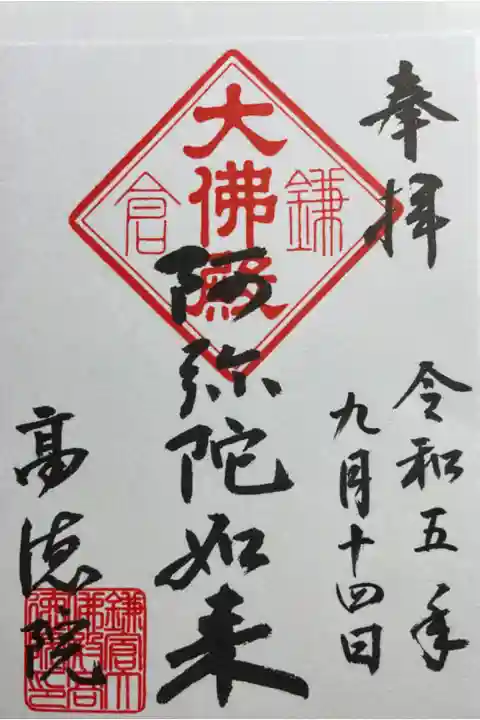 奉拝
令和五年
九月十四日
鎌倉
大佛殿
阿弥陀如来
高徳院